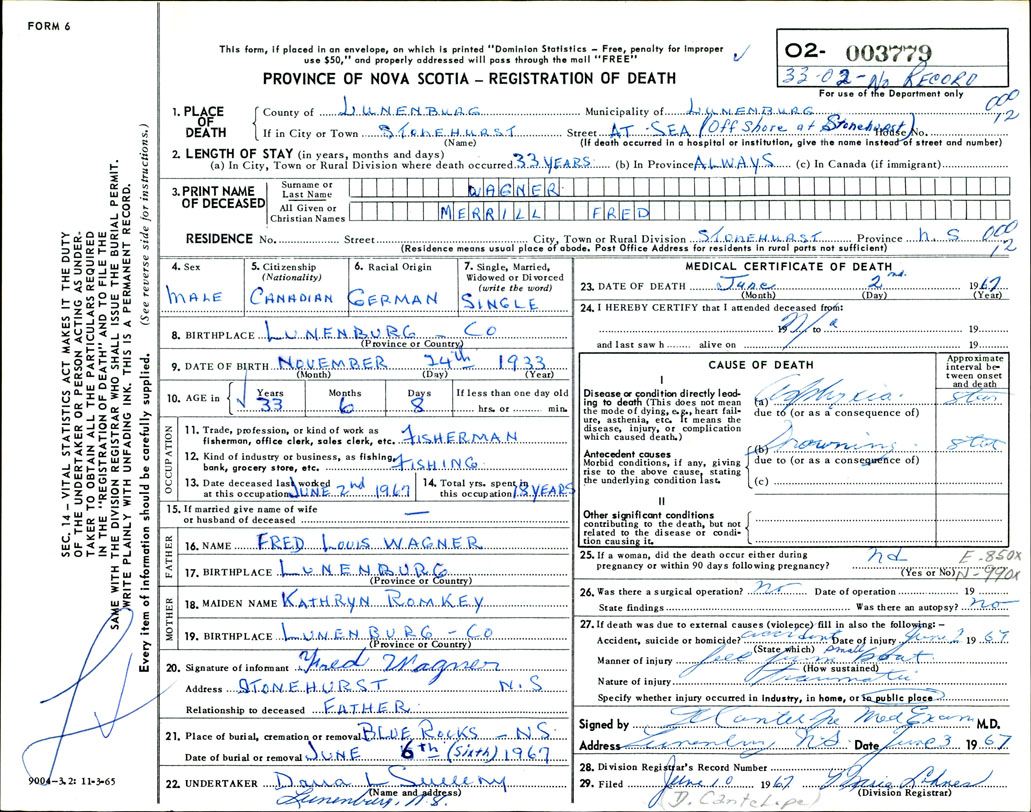 FORM 6
This form, if placed in an envelope, on which is printed "Dominion Statistics – Free, penalty for improper
use $50," and properly addressed will pass through the mail "FREE"
PROVINCE OF NOVA SCOTIA – REGISTRATION OF DEATH
O2- 003779
33-02-No RECORD
For use of the Department only
000
12
1. PLACE OF DEATH
County of LUNENBURG Municipality of LUNENBURG
If in City or Town STONEHURST Street AT SEA (Off Shore at Stonehurst) House No.
(Name) (If death occurred in a hospital or institution, give the name instead of street and number)
2. LENGTH OF STAY (in years, months and days)
(a) In City, Town or Rural Division where death occurred 33 YEARS (b) In Province ALWAYS (c) In Canada (if immigrant)
3. PRINT NAME OF DECEASED
Surname or Last Name WAGNER
All Given or Christian Names MERRILL FRED
RESIDENCE No. Street City, Town or Rural Division STONEHURST Province N.S 000
(Residence means usual place of abode. Post Office Address for residents in rural parts not sufficient) 12
4. Sex MALE
5. Citizenship (Nationality) CANADIAN
6. Racial Origin GERMAN
7. Single, Married, Widowed or Divorced (write the word) SINGLE
8. BIRTHPLACE LUNENBURG - CO
(Province or Country)
9. DATE OF BIRTH NOVEMBER 24th 1933
(Month) (Day) (Year)
10. AGE in Years 33 Months 6 Days 8 If less than one day old
hrs. or min.
OCCUPATION
11. Trade, profession, or kind of work as fisherman, office clerk, sales clerk, etc. FISHERMAN
12. Kind of industry or business, as fishing, bank, grocery store, etc. FISHING
13. Date deceased last worked at this occupation JUNE 2nd 1967
14. Total yrs. spent in this occupation 18 YEARS
15. If married give name of wife or husband of deceased —
FATHER
16. NAME FRED LOUIS WAGNER
17. BIRTHPLACE LUNENBURG
(Province or Country)
MOTHER
18. MAIDEN NAME KATHRYN ROMKEY
19. BIRTHPLACE LUNENBURG - CO
(Province or Country)
20. Signature of informant Fred Wagner
Address STONEHURST N.S
Relationship to deceased FATHER
21. Place of burial, cremation or removal BLUE ROCKS - NS.
Date of burial or removal JUNE 6th (Sixth) 1967
22. UNDERTAKER Dana L Sweeny
(Name and address)
Lunenburg, N.S.
MEDICAL CERTIFICATE OF DEATH
23. DATE OF DEATH June 2nd. 1967
(Month) (Day) (Year)
24. I HEREBY CERTIFY that I attended deceased from:
19 N/a to 19
and last saw h alive on 19
CAUSE OF DEATH
Approximate interval between onset and death
I
Disease or condition directly leading to death (This does not mean the mode of dying, e.g., heart failure, asthenia, etc. It means the disease, injury, or complication which caused death.)
(a) Asphyxia. stat
due to (or as a consequence of)
Antecedent causes
Morbid conditions, if any, giving rise to the above cause, stating the underlying condition last.
(b) Drowning. stat
due to (or as a consequence of)
(c)
II
Other significant conditions
contributing to the death, but not related to the disease or condition causing it.
25. If a woman, did the death occur either during pregnancy or within 90 days following pregnancy?
(Yes or No)
E-850X
N-990X
26. Was there a surgical operation? no Date of operation 19
State findings Was there an autopsy? no
27. If death was due to external causes (violence) fill in also the following:–
Accident, suicide or homicide? accident Date of injury June 2 1967
(State which)
Manner of injury fell from small boat.
(How sustained)
Nature of injury
Specify whether injury occurred in industry, in home, or in public place
Signed by Med Exam M.D.
Address Lunenburg N.S. Date June 3 1967
28. Division Registrar's Record Number
29. Filed June 10 1967
(Division Registrar)
(D. Cantelope)
SEC. 14 – VITAL STATISTICS ACT MAKES IT THE DUTY
OF THE UNDERTAKER OR PERSON ACTING AS UNDER-
TAKER TO OBTAIN ALL THE PARTICULARS REQUIRED
IN THE "REGISTRATION OF DEATH" AND TO FILE THE
SAME WITH THE DIVISION REGISTRAR WHO SHALL ISSUE THE BURIAL PERMIT.
WRITE PLAINLY WITH UNFADING INK. THIS IS A PERMANENT RECORD.
Every item of information should be carefully supplied. (See reverse side for instructions.)
9004–3.2: 11-3-65